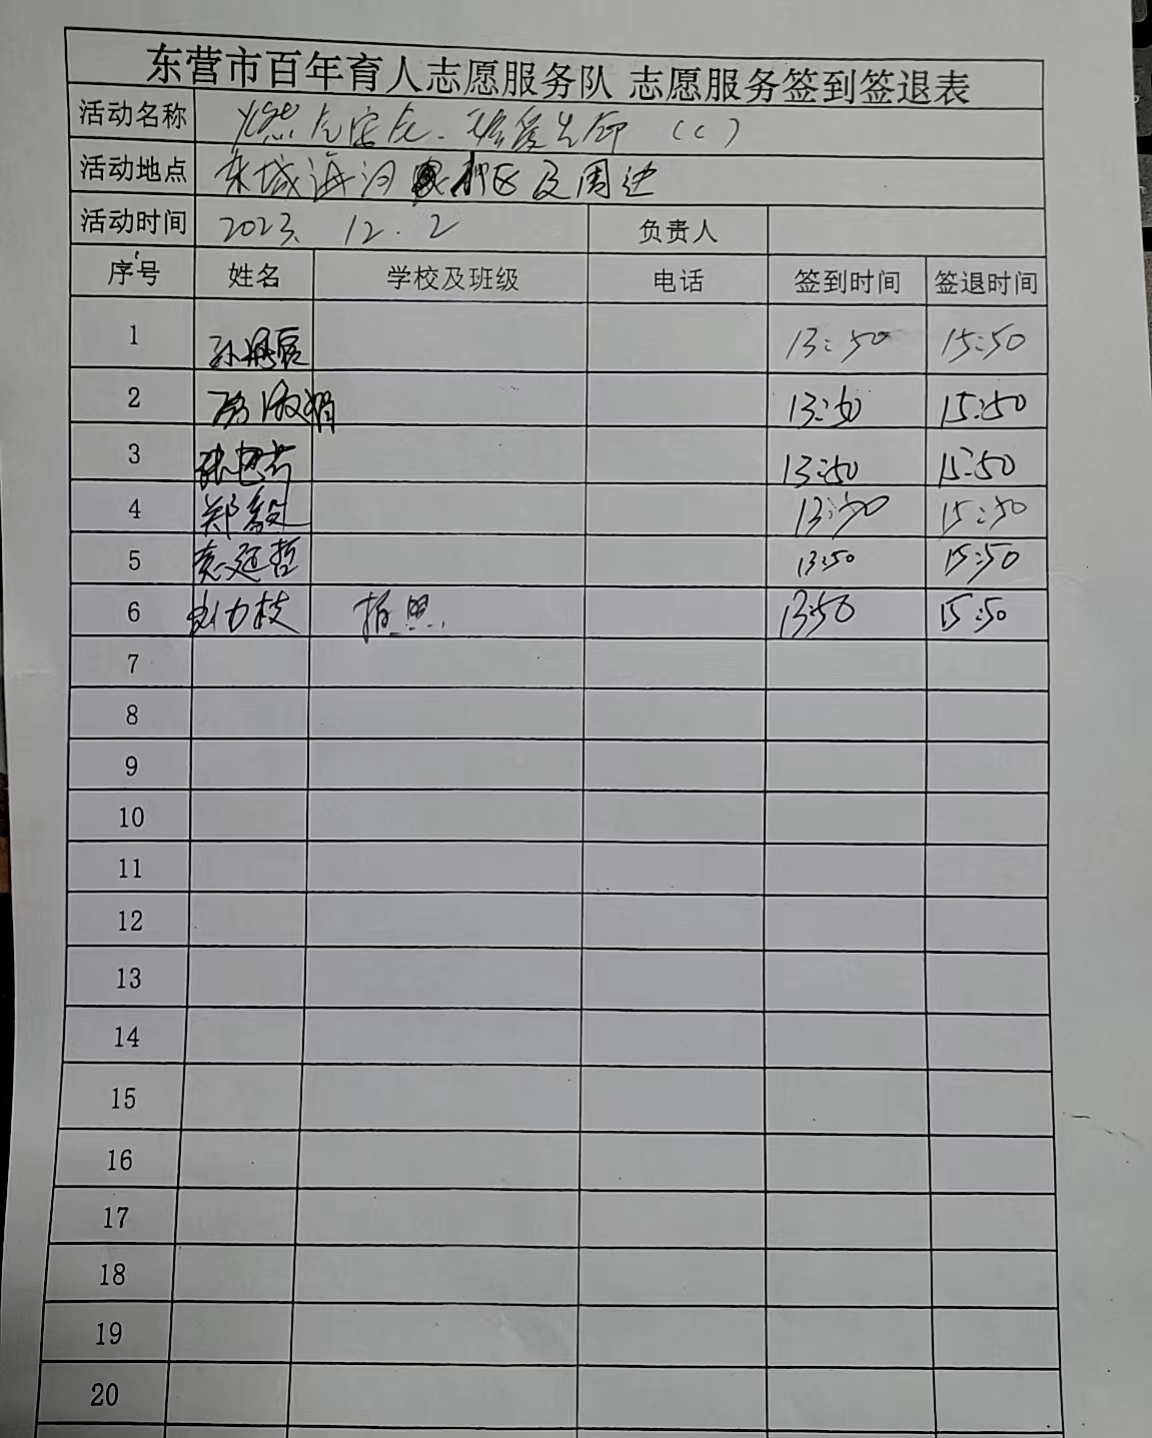 东营市百年育人志愿服务队 志愿服务签到签退表
活动名称 燃点安全、珍爱生命 (C)
活动地点 东城海河 社区及周边
活动时间 2023. 12. 2 负责人
序号 姓名 学校及班级 电话 签到时间 签退时间
1 13:50 15:50
2 13:50 15:50
3 13:50 15:50
4 郑毅 13:50 15:50
5 袁延哲 13:50 15:50
6 拍照 13:50 15:50
7
8
9
10
11
12
13
14
15
16
17
18
19
20